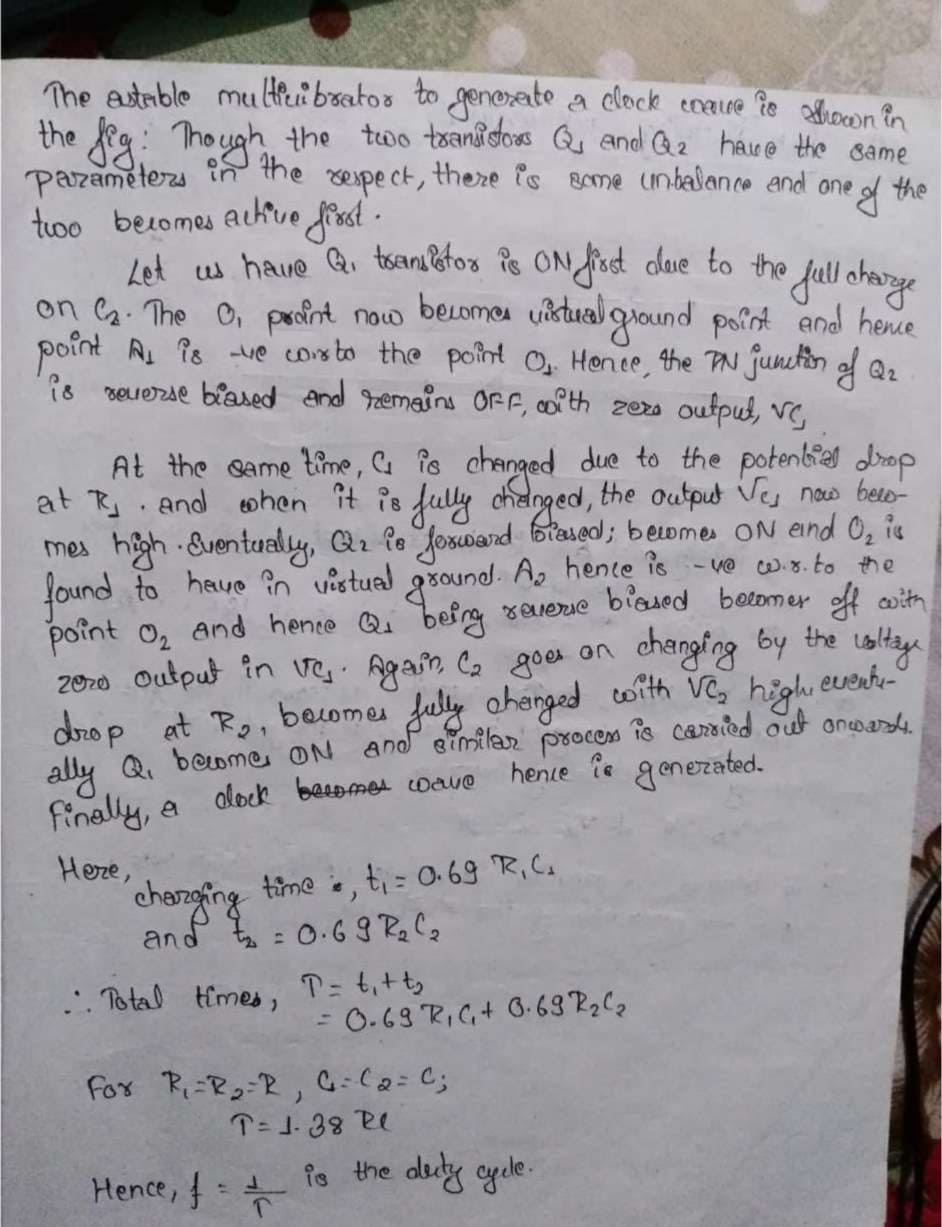 The astable multivibrator to generate a clock wave is shown in
the fig: Though the two transistors Q₁ and Q₂ have the same
parameters in the respect, there is some unbalance and one of the
two becomes active first.
Let us have Q₁ transistor is ON first due to the full charge
on C₂. The O₁ point now becomes virtual ground point and hence
point A₁ is -ve w.r.to the point O₁. Hence, the PN junction of Q₂
is reverse biased and remains OFF, with zero output, VC₁
At the same time, C₁ is changed due to the potential drop
at R₁. and when it is fully changed, the output Vc₁ now beco-
mes high. Eventually, Q₂ is forward biased; becomes ON and O₂ is
found to have in virtual ground. A₂ hence is -ve w.r.to the
point O₂ and hence Q₁ being reverse biased becomes off with
zero output in VC₁. Again, C₂ goes on changing by the voltage
drop at R₂, becomes fully changed with VC₂ high eventu-
ally Q₁ becomes ON and similar process is carried out onwards.
Finally, a clock becomes wave hence is generated.
Here,
charging time is, t₁ = 0.69 R₁C₁
and t₂ = 0.69 R₂C₂
∴ Total times, T = t₁ + t₂
= 0.69 R₁C₁ + 0.69 R₂C₂
For R₁=R₂=R, C₁=C₂=C;
T = 1.38 RC
Hence, f = 1/T is the duty cycle.